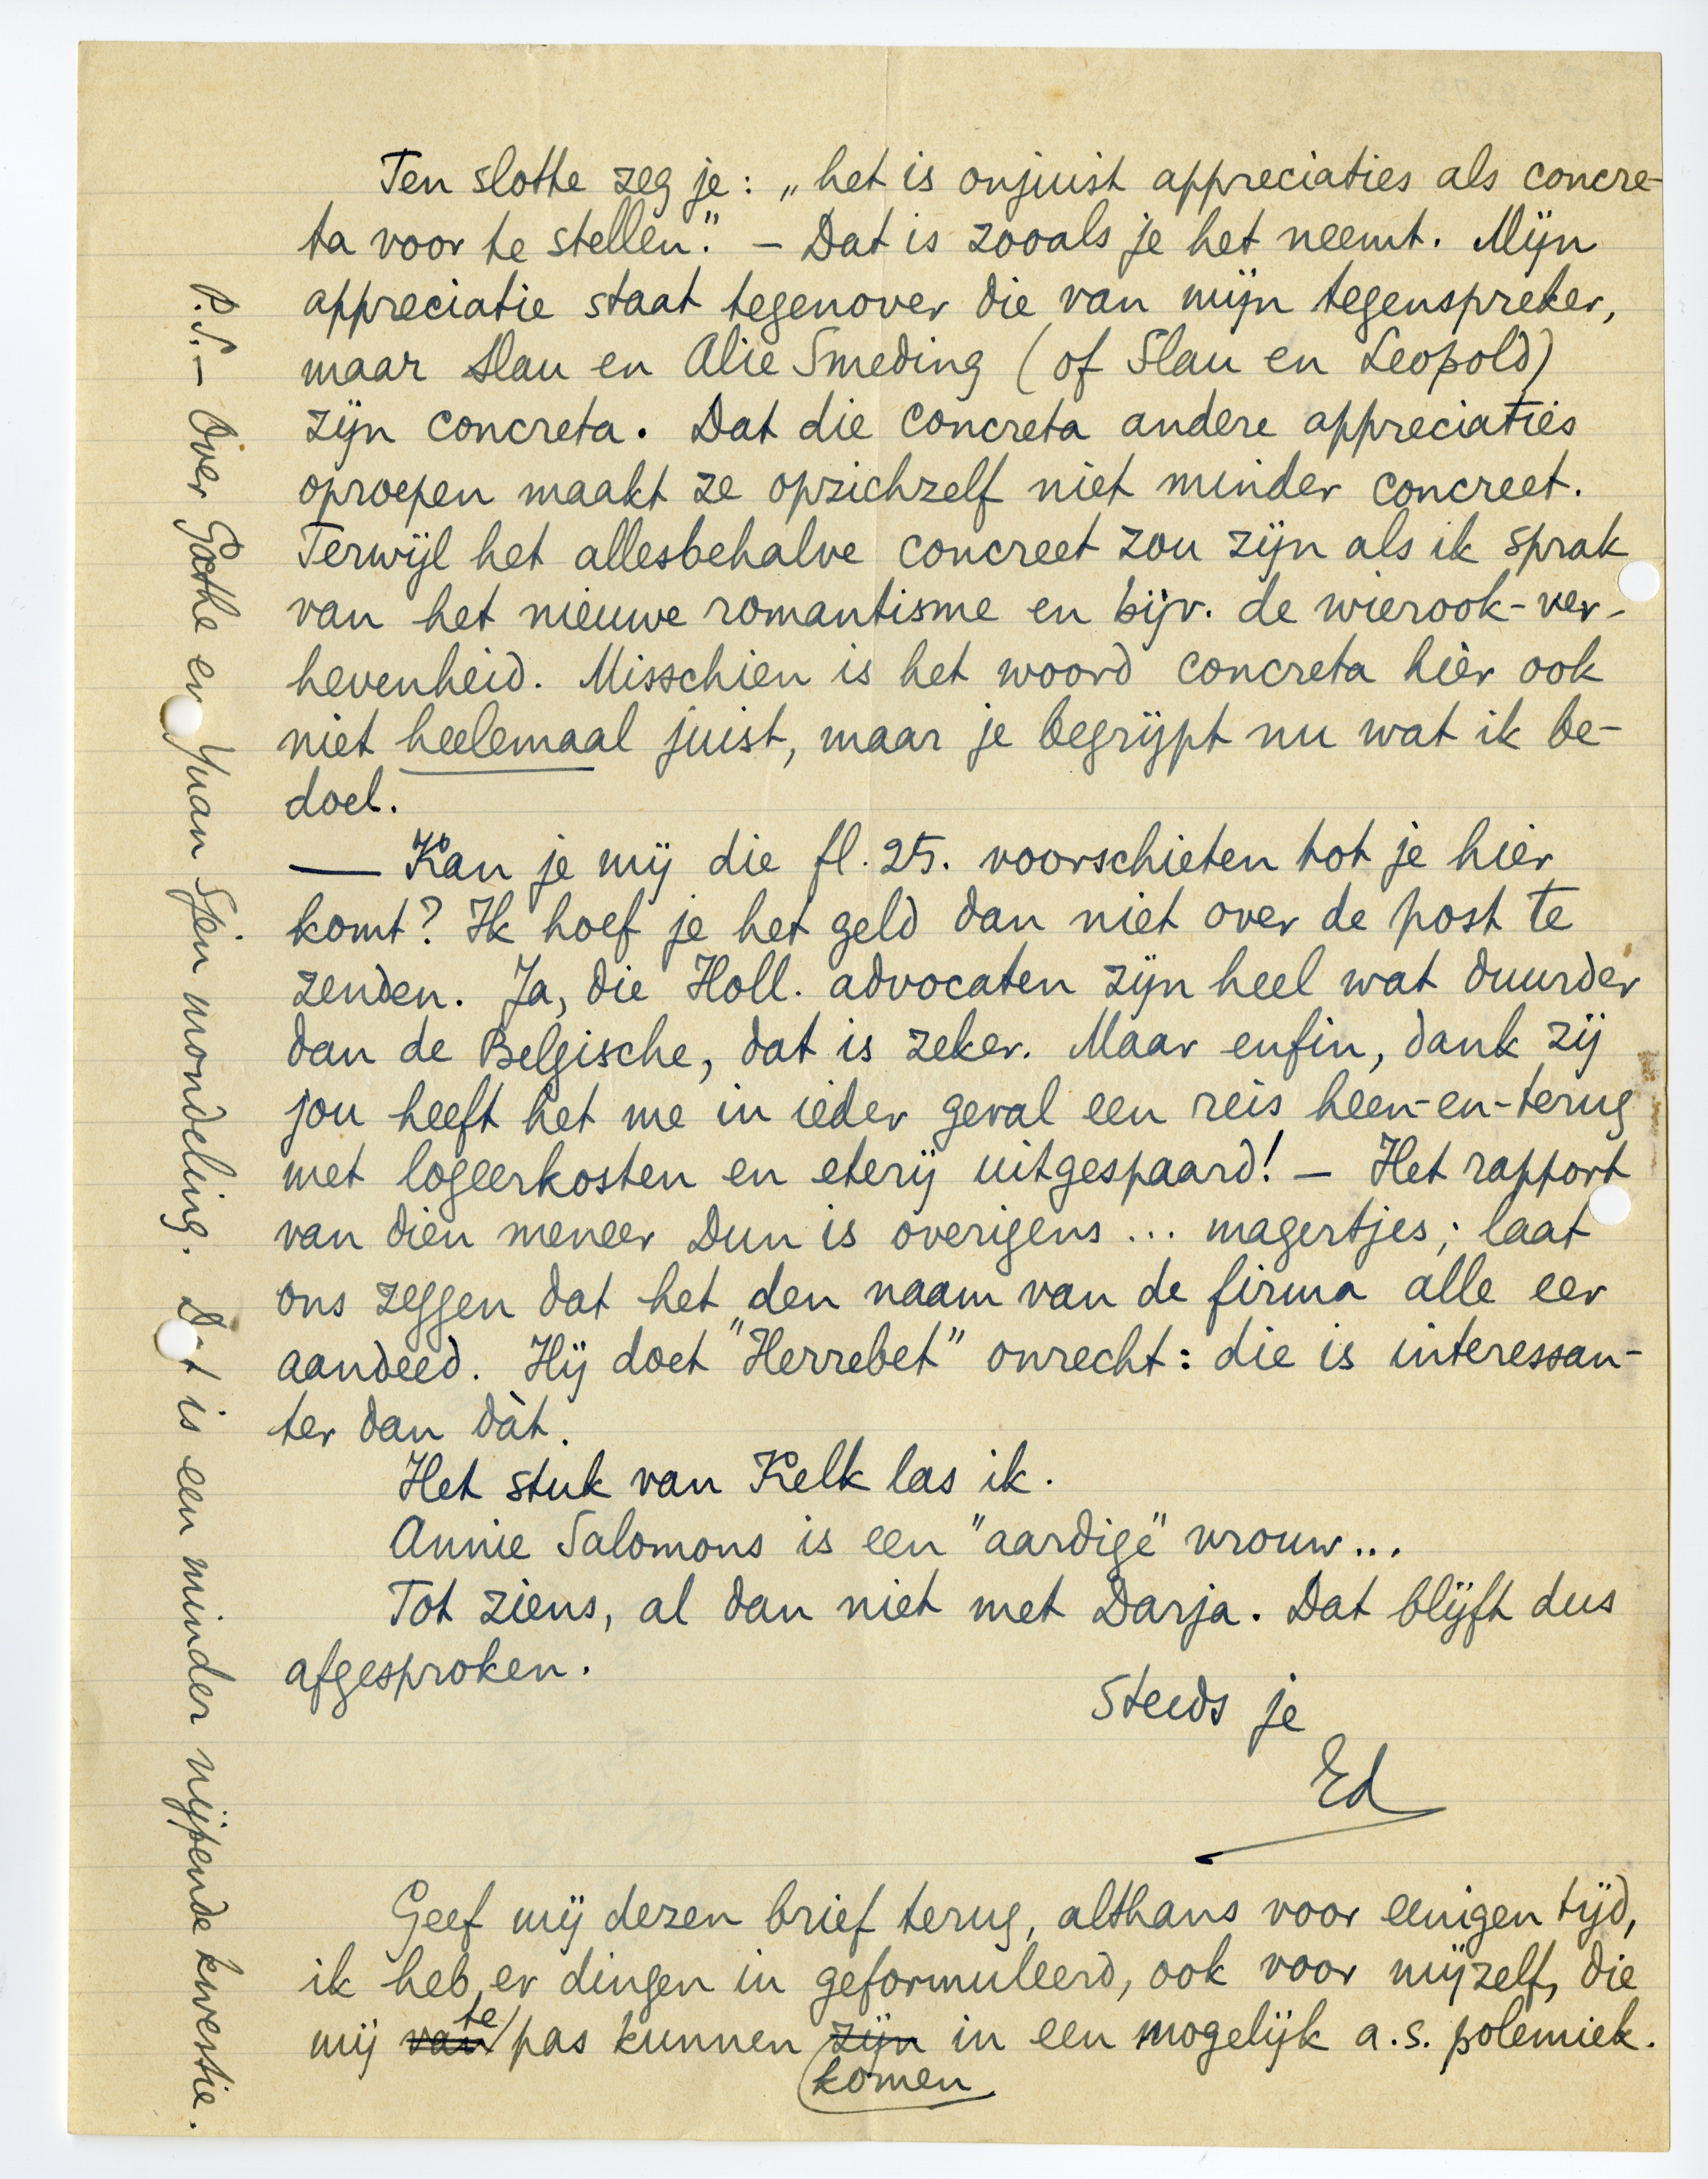 Ten slotte zeg je: „het is onjuist appreciaties als concre-
ta voor te stellen." – Dat is zooals je het neemt. Mijn
appreciatie staat tegenover die van mijn tegenspreker,
maar Slau en Alie Smeding (of Slau en Leopold)
zijn concreta. Dat die concreta andere appreciaties
oproepen maakt ze opzichzelf niet minder concreet.
Terwijl het allesbehalve concreet zou zijn als ik sprak
van het nieuwe romantisme en bijv. de wierook-ver-
hevenheid. Misschien is het woord concreta hier ook
niet heelemaal juist, maar je begrijpt nu wat ik be-
doel.
— Kan je mij die fl. 25. voorschieten tot je hier
komt? Ik hoef je het geld dan niet over de post te
zenden. Ja, die Holl. advocaten zijn heel wat duurder
dan de Belgische, dat is zeker. Maar enfin, dank zij
jou heeft het me in ieder geval een reis heen-en-terug
met logeerkosten en eterij uitgespaard! – Het rapport
van dien meneer Dun is overigens ... magertjes; laat
ons zeggen dat het den naam van de firma alle eer
aandeed. Hij doet "Herrebet" onrecht: die is interessan-
ter dan dàt.
Het stuk van Kelk las ik.
Annie Salomons is een "aardige" vrouw...
Tot ziens, al dan niet met Darja. Dat blijft dus
afgesproken.
Steeds je
Ed
Geef mij dezen brief terug, althans voor eenigen tijd,
ik heb er dingen in geformuleerd, ook voor mijzelf, die
mij van te pas kunnen zijn in een mogelijk a.s. polemiek.
komen
P.S. – Over Goethe en Yuan Sjen mondeling. Dat is een minder nijpende kwestie.